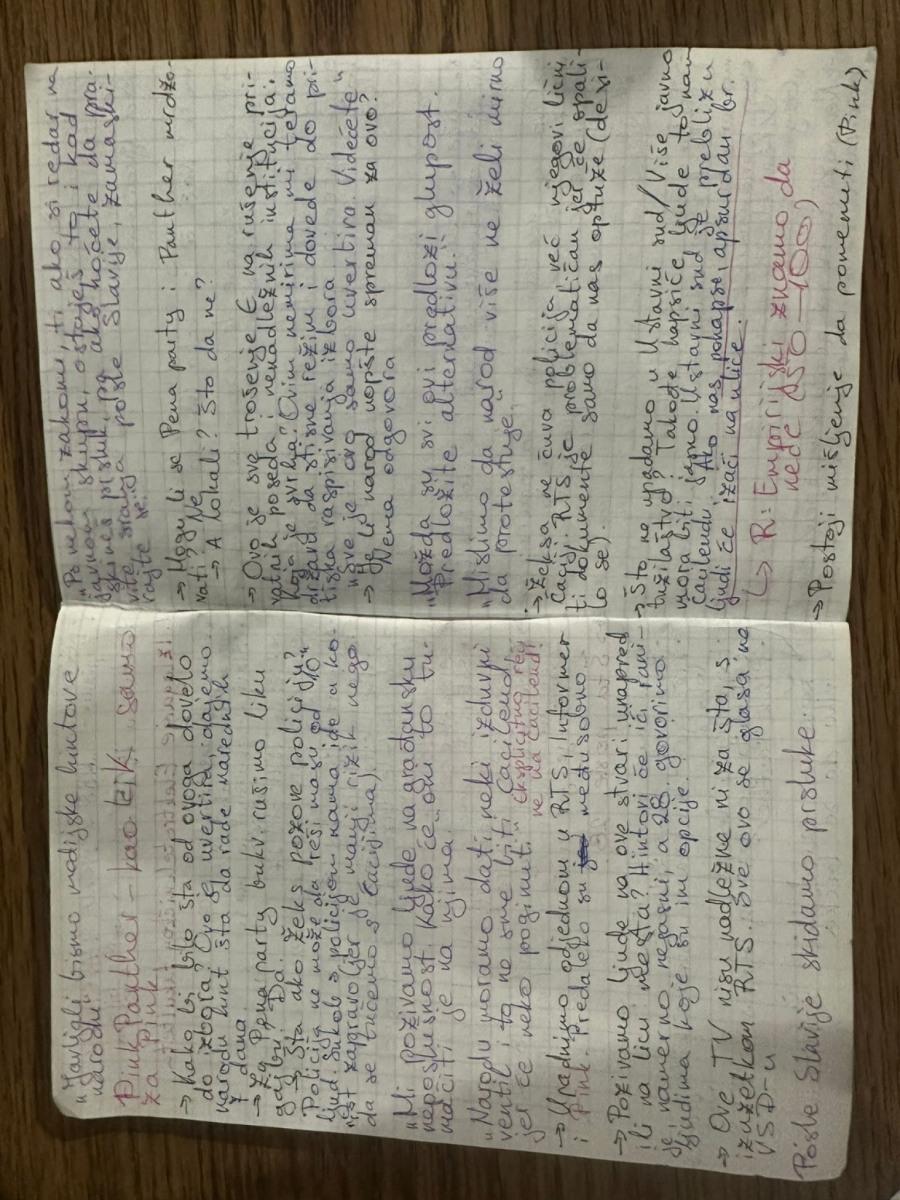 "Javljali bismo medijske hintove
"narodu"
Pink Panther - kao EIK, samo
za Pink
→ Kako bi bilo šta od ovoga dovelo
do izbora? Ovo je uvertira, dajemo
narodu hint šta da rade narednih
7 dana
→ Za Pena party bukv. rušimo liku
gajbu? Da.
→ Šta ako Žeks pozove policiju?
Policija ne može da reši masu od
ljudi. Sukob s policijom nama ide u ko-
rist zapravo (jer je manji rizik nego
da se tučemo s Ćacijima).
"Mi pozivamo ljude na građansku
neposlušnost. Kako će oni to tu-
mačiti je na njima.
"Narodu moramo dati neki izduvni
ventil i to ne sme biti Ćacilend,
jer će neko poginuti. (Eksplicitno rey
ne na Ćacilend!
→ Upadnijmo odjednom u RTS, Informer
i Pink. Predaleko su međusobno.
→ Pozivamo ljude na ove stvari unapred
ili na licu mesta? Hintovi će ići rani-
je, namerno nejasni, a 28. govorimo
ljudima koje su im opcije.
→ Ove TV nisu nadležne ni za šta, s
izuzetkom RTS. Sve ovo se glasa na
VSD-u
Posle Slavije skidamo prsluke.
"Po nekom zakonu, ti ako si redar na
javnom skupu, ostaješ to i kad
skineš prsluk, pa ako hoćete da pra-
vite sranja posle Slavije, zamaski-
rajte se.
→ Mogu li se Pena party i Panther mrdžo-
vati? Ne
→ A lokali? Što da ne?
→ Ovo je sve trošenje E na rušenje pri-
vatnih poseda i nenadležnih institucija.
Koja je svrha? Ovim nemirima mi teramo
državu da stisne režim i dovede do pri-
tiska raspisivanja izbora
"Sve je ovo samo uvertira. Videćete"
→ Je li narod uopšte spreman za ovo?
Nema odgovora
"Možda su svi ovi predlozi glupost.
Predložite alternativu."
"Mislimo da narod više ne želi mirno
da protestuje.
→ Žeksa ne čuva policija već njegovi lični
Ćaciji. RTS je problematičan jer će spali-
ti dokumente samo da nas optuže (de si-
lo se).
→ Što ne upadamo u Ustavni sud/Više javno
tužilaštvo? Takođe hapsiće ljude, to nam
mora biti jasno. Ustavni sud je preblizu
Ćacilendu. Ako nas pohapse, apsurdan br.
ljudi će izaći na ulice.
↳ R: Empirijski znamo da
neće (50-100)
→ Postoji mišljenje da pomenuti (Pink)